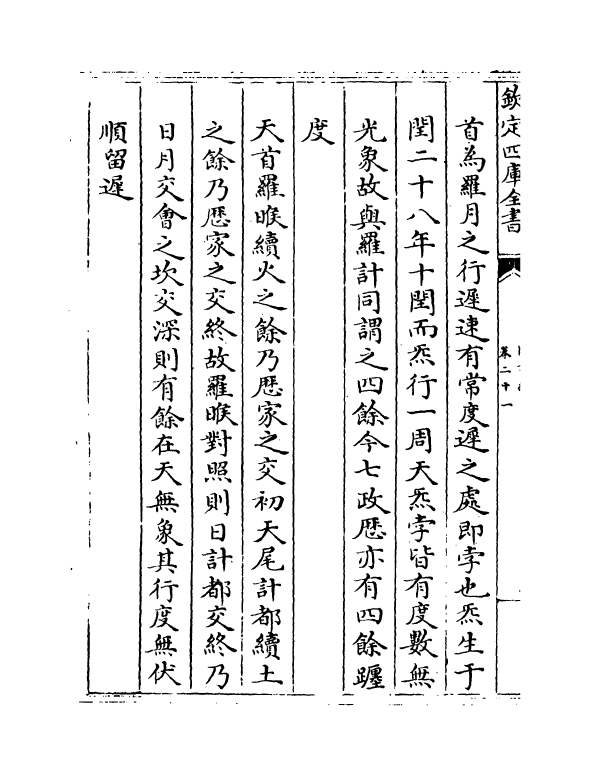 欽定四庫全書
卷二十一
首為羅月之行遲速有常度遲之處即孛也炁生于
閏二十八年十閏而炁行一周天炁孛皆有度數無
光象故與羅計同謂之四餘今七政厯亦有四餘躔
度
天首羅㬋續火之餘乃厯家之交初天尾計都續土
之餘乃厯家之交終故羅㬋對照則日計都交終乃
日月交會之坎交深則有餘在天無象其行度無伏
順留遲